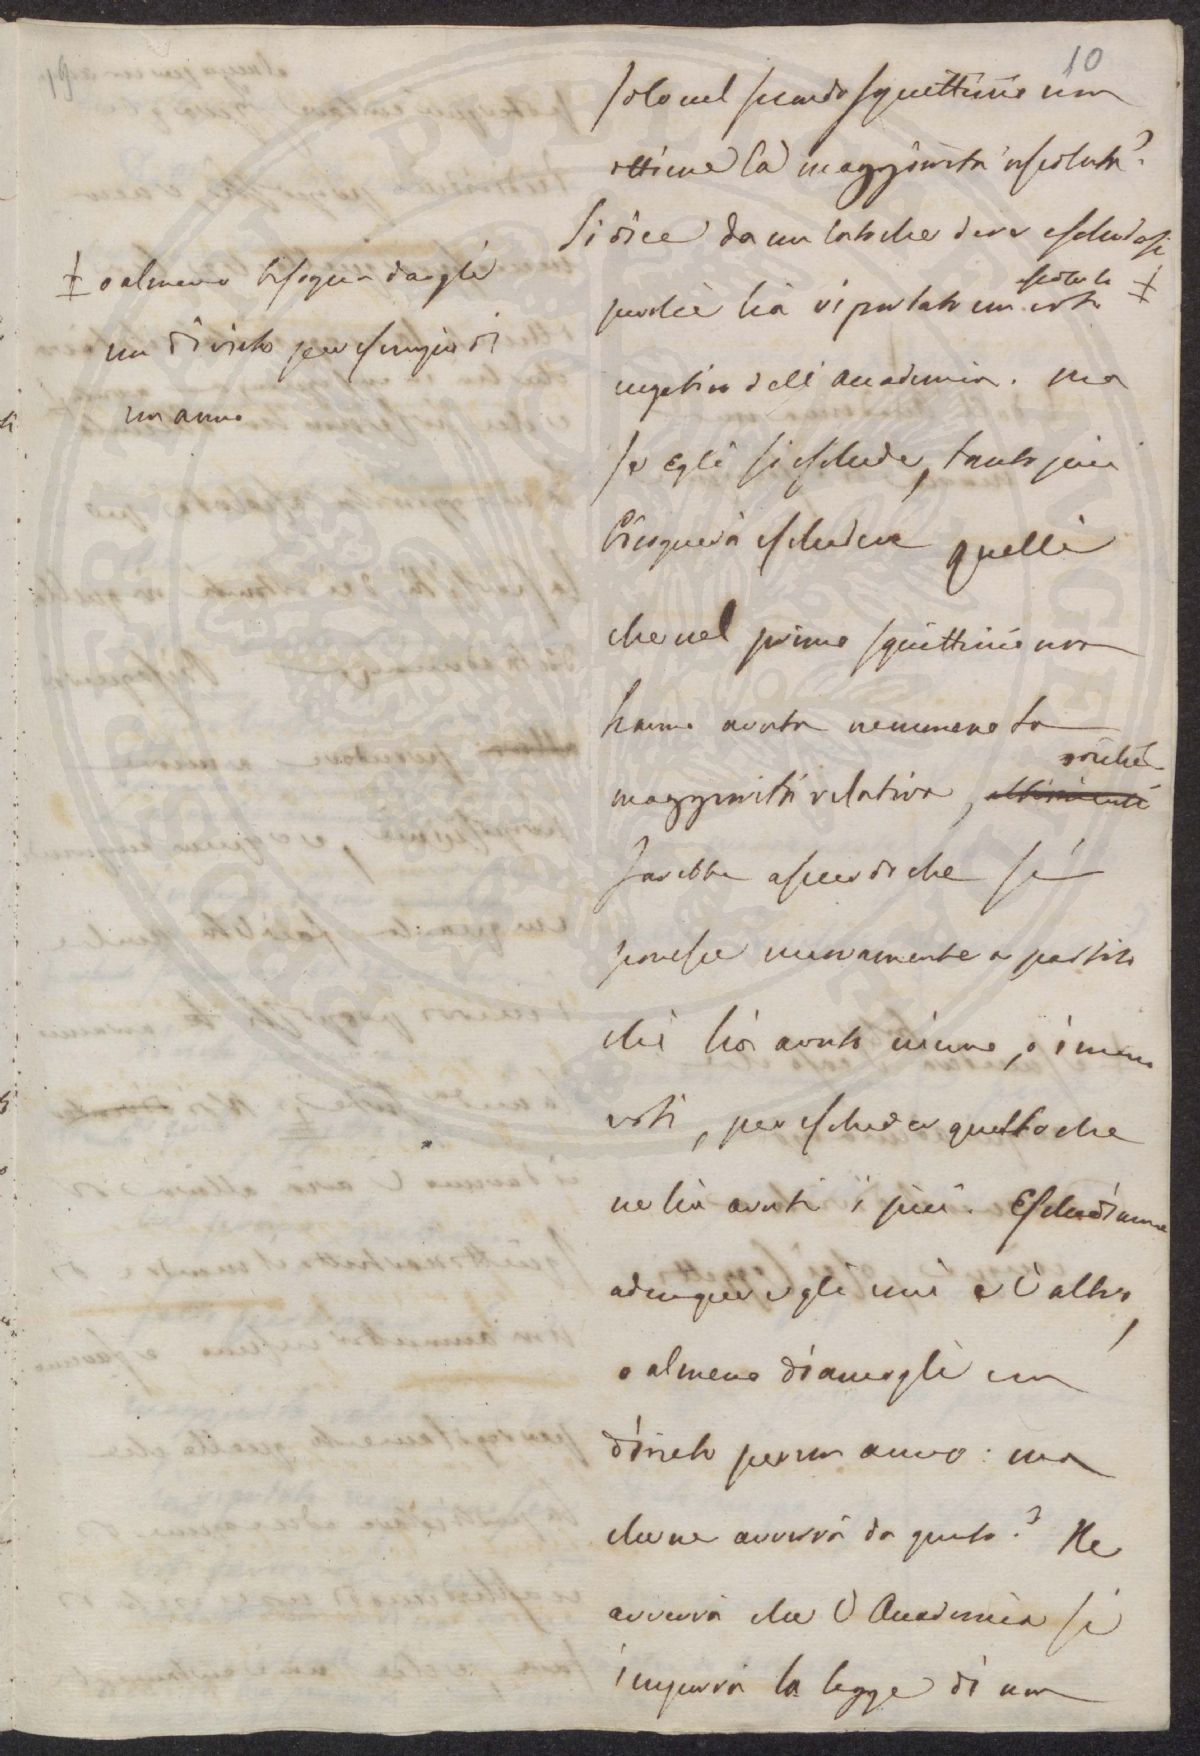 10
solo nel secondo squittinio non
ottiene la maggiorità assoluta?
Si dice da un lato che deve escludersi
perchè ha riportato un assoluto voto ‡
negativo dell'Accademia. ma
se Egli si esclude, tanto più
bisognerà escludere quelli
che nel primo squittinio non
hanno avuta nemmeno la
maggiorità relativa, altrimenti
sarebbe assurdo che si
ponesse nuovamente a partito
chi ha avuto niuno, o i meno
voti, per escludere quello che
ne ha avuti i più. Escludiamo
adunque e gli uni e l'altro,
o almeno diamogli un
divieto per un anno: ma
che ne avverrà da questo? Ne
avverrà che l'Accademia si
imporrà la legge di non
‡ o almeno bisogna dargli
un divieto per esempio di
un anno